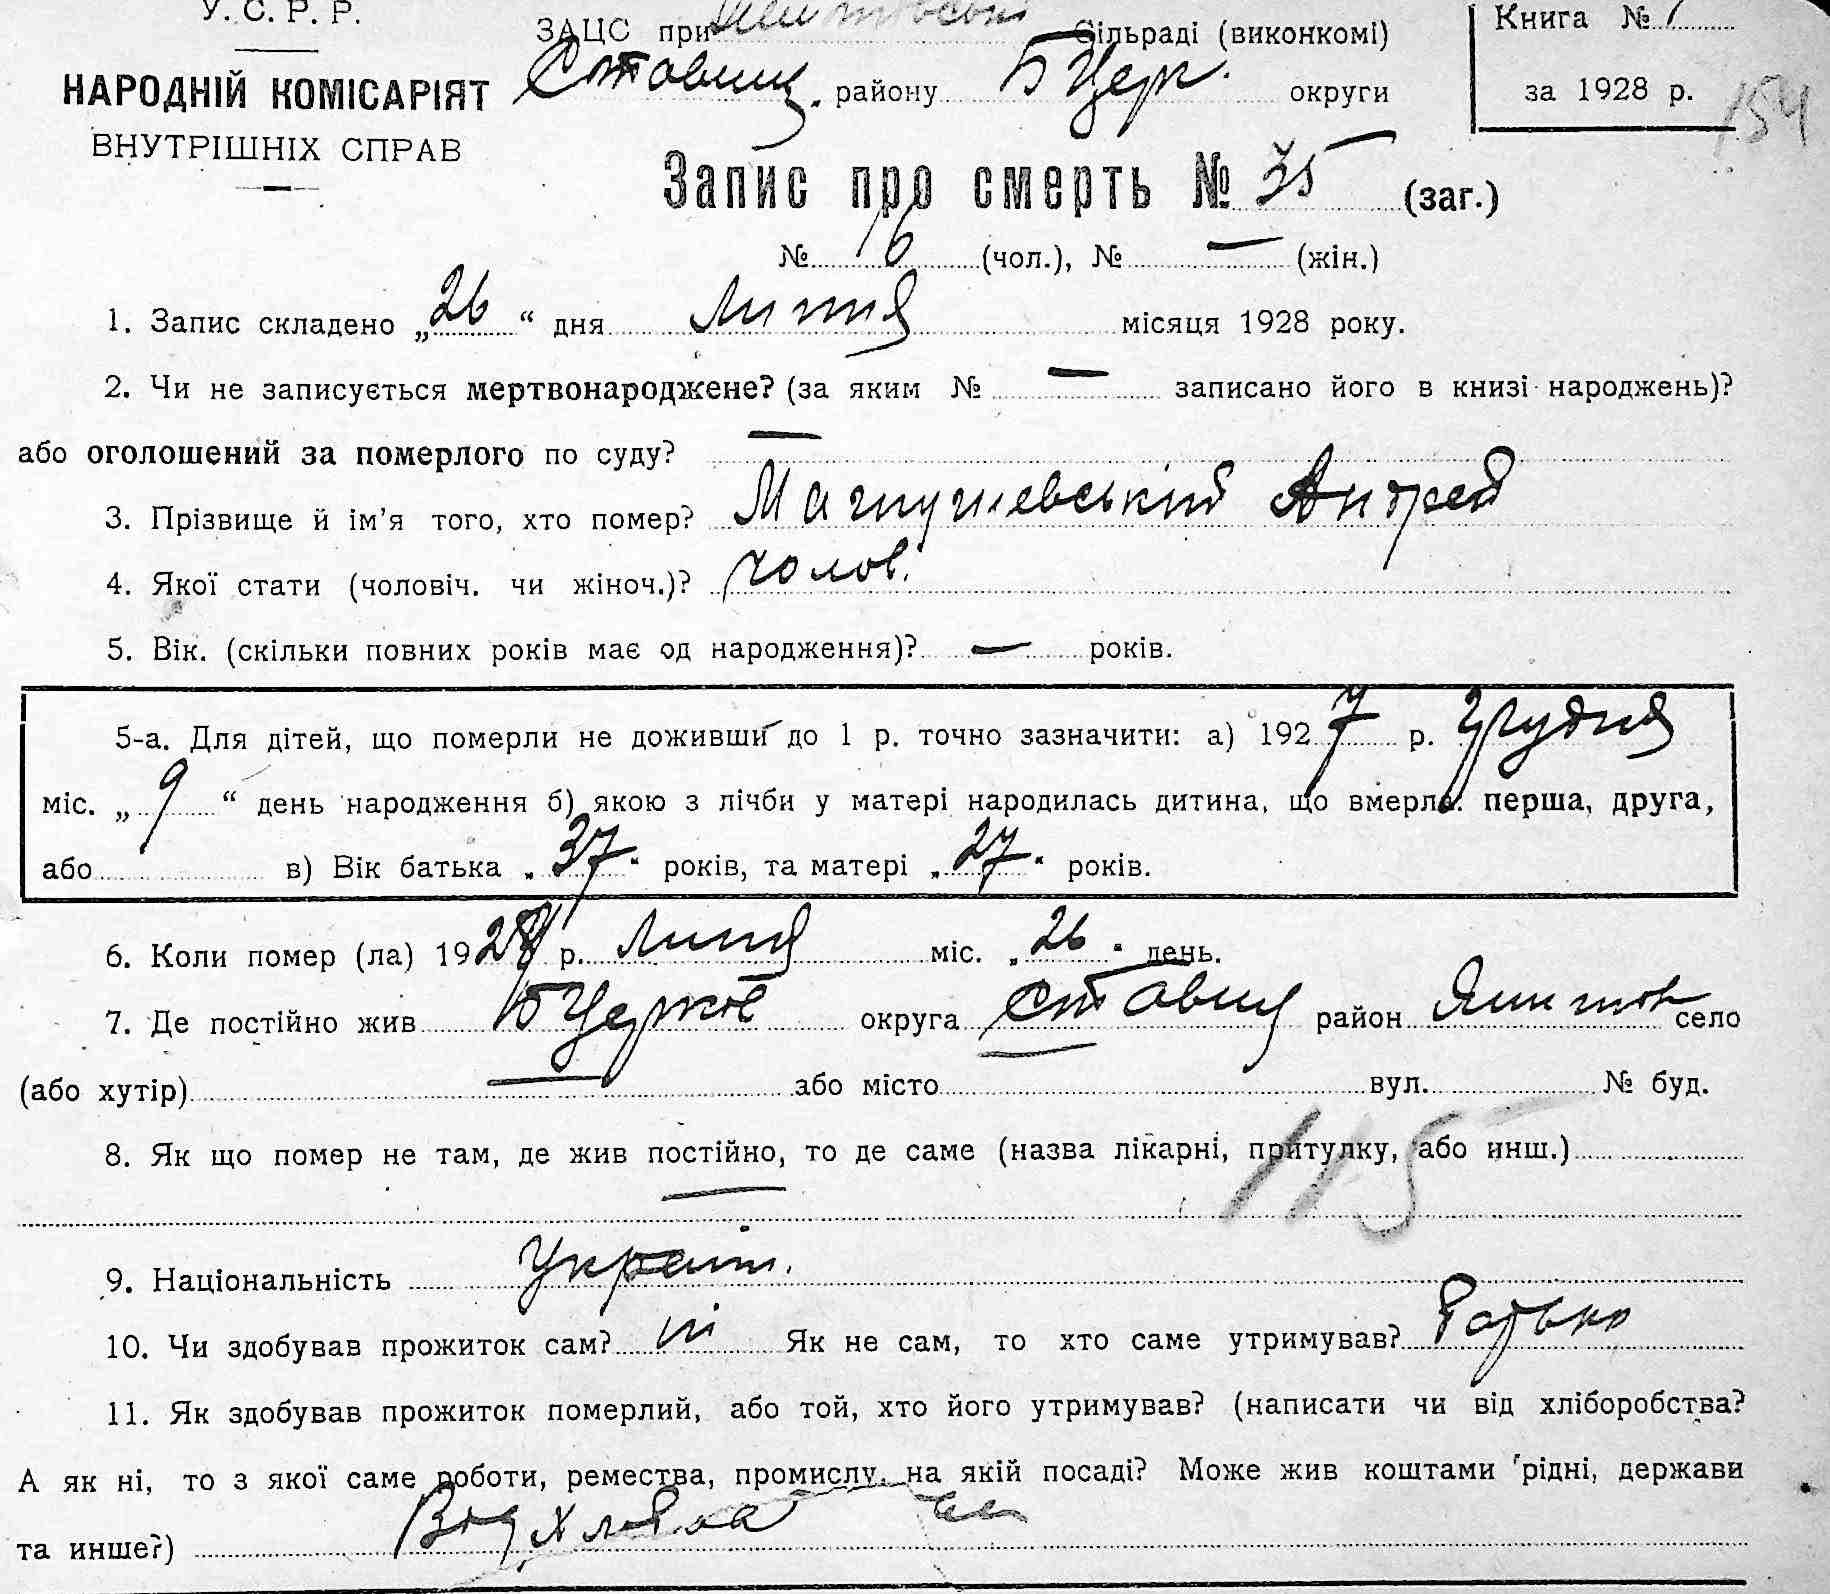 У. С. Р. Р.
НАРОДНІЙ КОМІСАРІЯТ
ВНУТРІШНІХ СПРАВ
ЗАЦС при Сільраді (виконкомі)
Ставищ. району Б Церк. округи
Книга № 1
за 1928 р.
154
Запис про смерть № 35 (заг.)
№ 16 (чол.), № — (жін.)
1. Запис складено „26“ дня Липня місяця 1928 року.
2. Чи не записується мертвонароджене? (за яким № — записано його в книзі народжень)?
або оголошений за померлого по суду? —
3. Прізвище й ім'я того, хто помер? Андрей
4. Якої стати (чоловіч. чи жіноч.)? чолов.
5. Вік. (скільки повних років має од народження)? — років.
5-а. Для дітей, що померли не доживши до 1 р. точно зазначити: а) 1927 р. Грудня
міс. „9“ день народження б) якою з лічби у матері народилась дитина, що вмерла: перша, друга,
або в) Вік батька „37“ років, та матері „27“ років.
6. Коли помер (ла) 1928 р. Липня міс. „26“ день.
7. Де постійно жив Б Церков округа Ставищ район село
(або хутір) — або місто вул. № буд.
8. Як що помер не там, де жив постійно, то де саме (назва лікарні, притулку, або инш.)
— 115
9. Національність Україн.
10. Чи здобував прожиток сам? ні Як не сам, то хто саме утримував? Батько
11. Як здобував прожиток померлий, або той, хто його утримував? (написати чи від хліборобства?
А як ні, то з якої саме роботи, ремества, промислу, на якій посаді? Може жив коштами рідні, держави
та инше?) Від